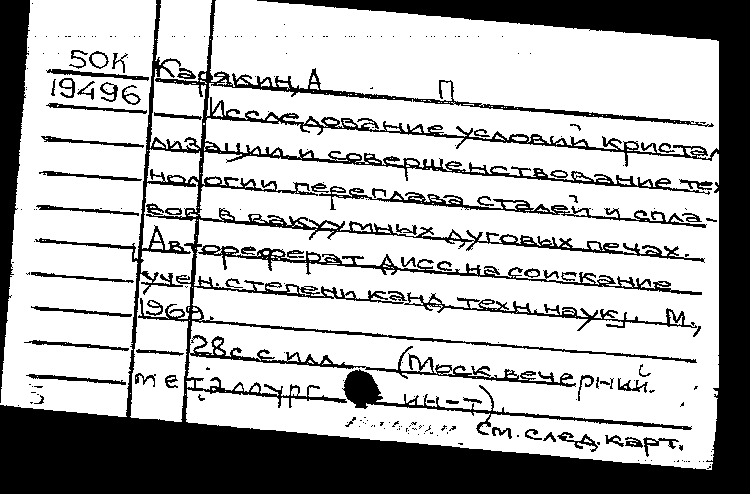 50К Карякин, А П
19496 Исследование условий кристал
лизации и совершенствование тех
нологии переплава сталей и спла-
вов в вакуумных дуговых печах.
Автореферат дисс. на соискание
учен. степени канд. техн. наук. М.,
1969.
28с с илл. (Моск. вечерний.
металлург ин-т).
см. след. карт.